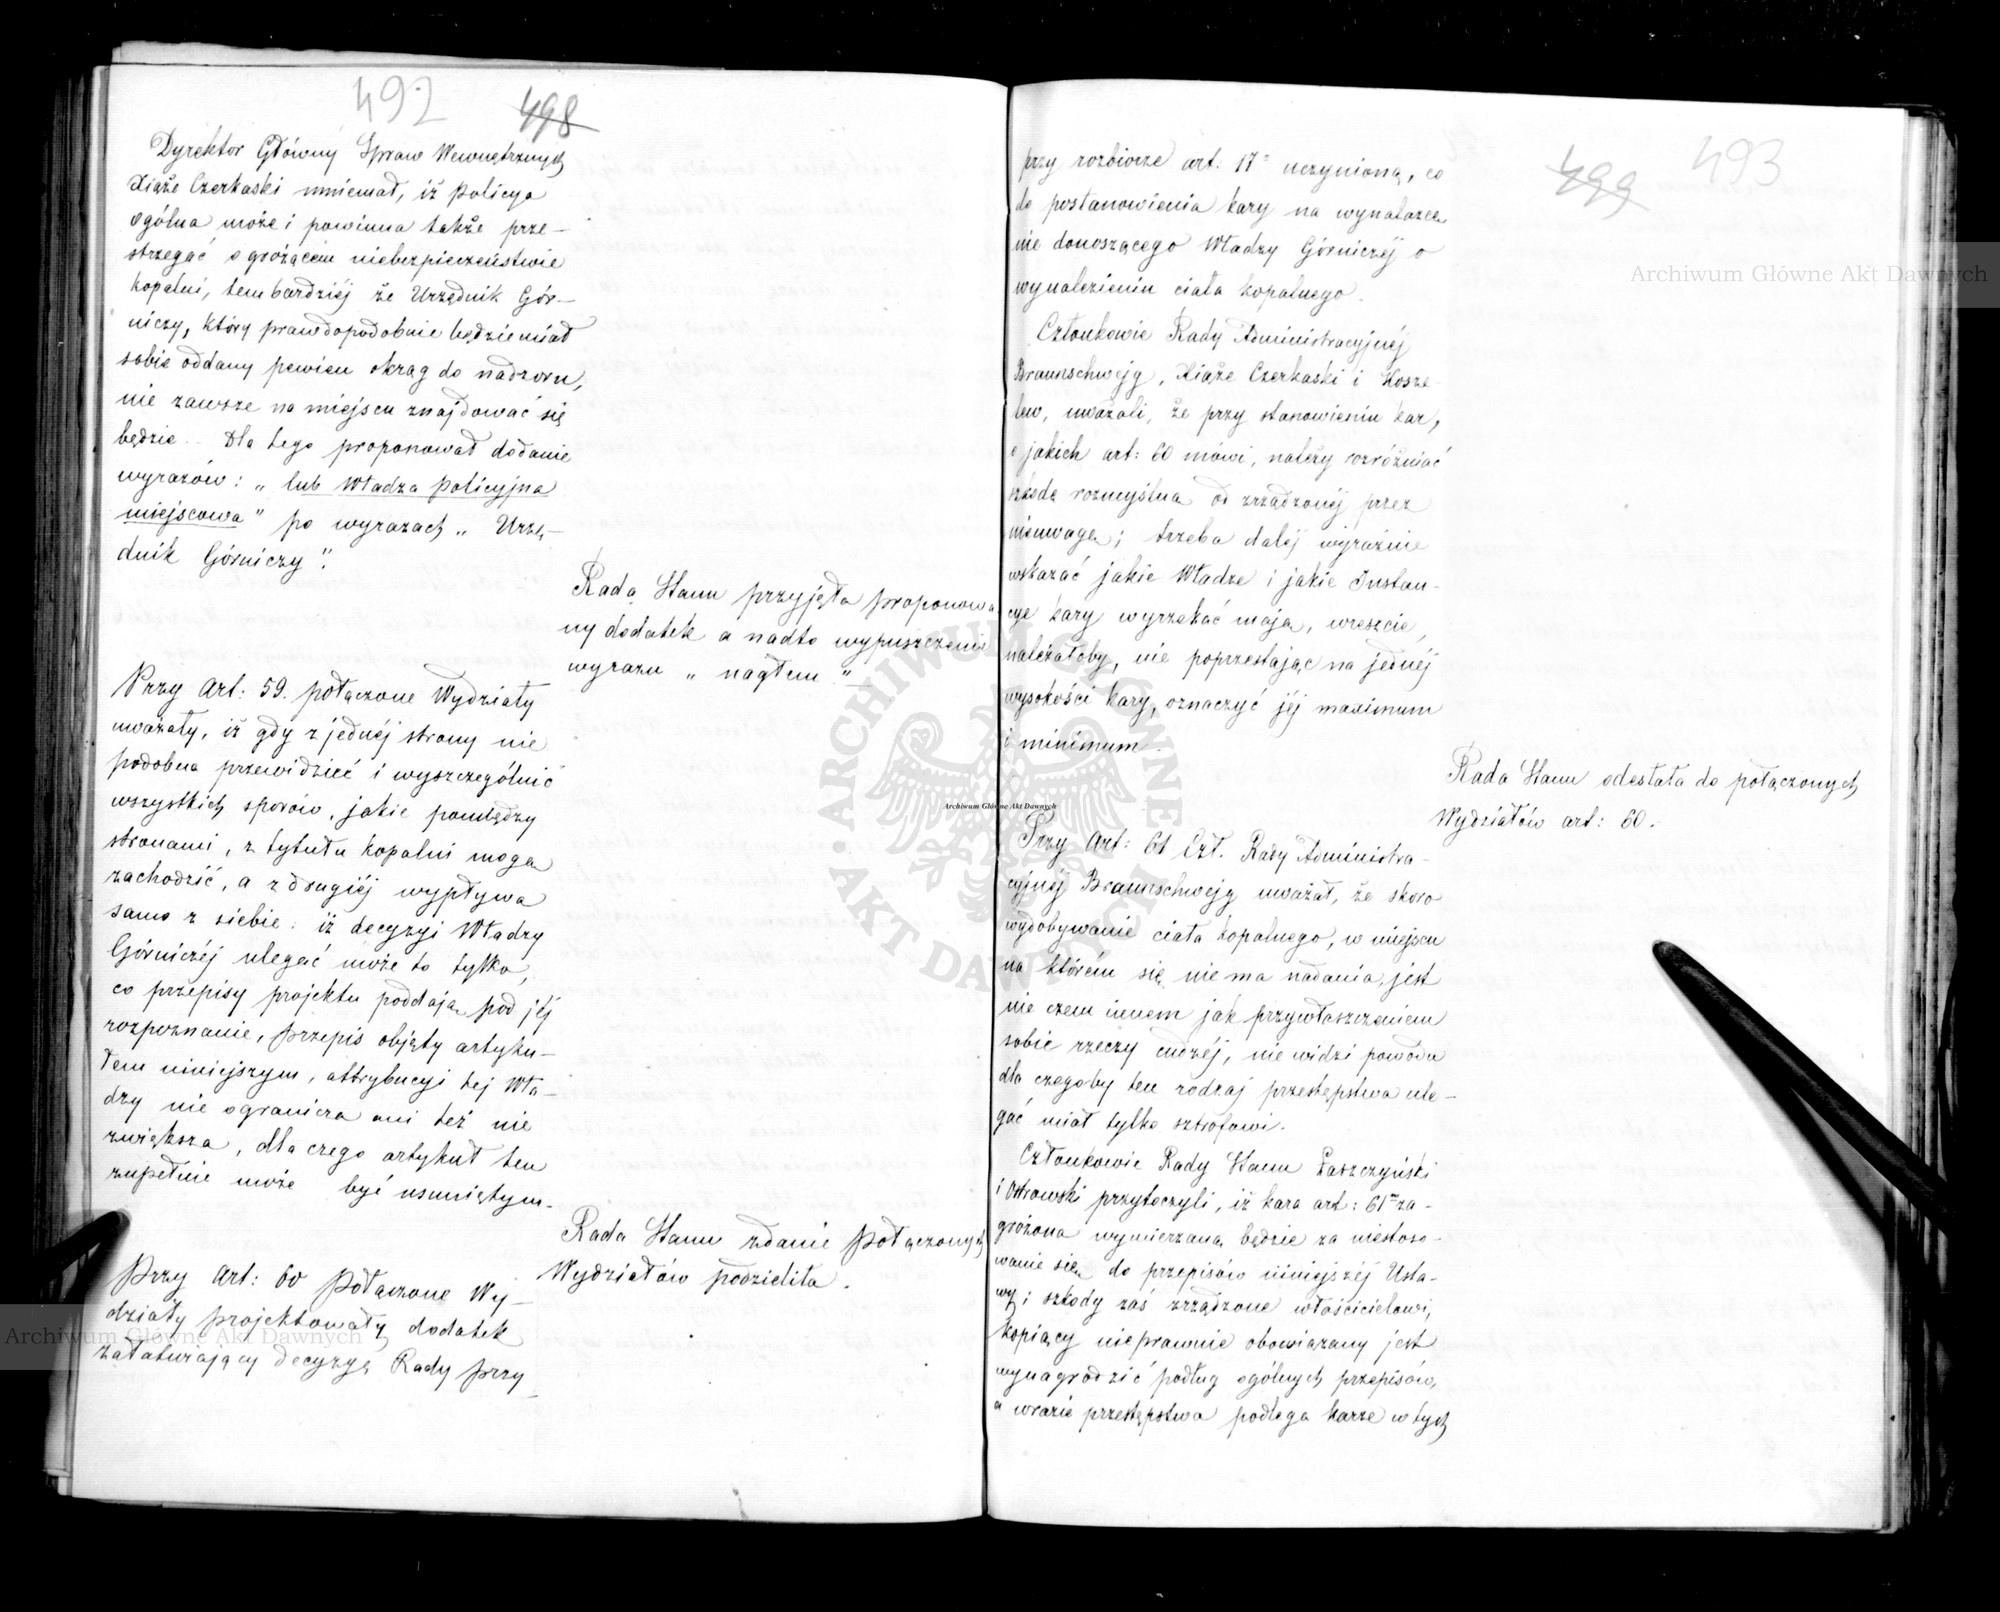 492
498
Dyrektor Główny Spraw Wewnętrznych
Xiąże Czerkaski mniemał, iż policya
ogólna może i powinna także prze-
strzegać o grożącem niebezpieczeństwie
kopalni, tem bardziéj że Urzędnik Gór-
niczy, który prawdopodobnie będzie miał
sobie oddany pewien okrąg do nadzoru,
nie zawsze na miejscu znajdować się
będzie. Dla tego proponował dodanie
wyrazów: „lub Władza policyjna
miejscowa" po wyrazach „Urzę-
dnik Górniczy".
Rada Stanu przyjęła proponowa
ny dodatek a nadto wypuszczenie
wyrazu „nagłem"
Przy Art: 59. połączone Wydziały
uważały, iż gdy z jednéj strony nie
podobna przewidzieć i wyszczególnić
wszystkich sporów, jakie pomiędzy
stronami, z tytułu kopalni mogą
zachodzić, a z drugiéj wypływa
samo z siebie: iż decyzyi Władzy
Górniczéj ulegać może to tylko,
co przepisy projektu poddają pod jéj
rozpoznanie, przepis objęty artyku-
łem niniejszym, attrybucyi téj Wła-
dzy nie ogranicza ani też nie
zwiększa, dla czego artykuł ten
zupełnie może być usuniętym.
Rada Stanu zdanie połączonych
Wydziałów podzieliła.
Przy Art: 60 Połączone Wy-
działy projektowały dodatek
załatwiający decyzyę Rady przy
493
499
przy rozbiorze art: 17º uczynioną, co
do postanowienia kary na wynalazcę
nie donoszącego Władzy Górniczéj o
wynalezieniu ciała kopalnego.
Członkowie Rady Administracyjnéj
Braunschwejg, Xiąże Czerkaski i Kosze-
lew, uważali, że przy stanowieniu kar,
o jakich art: 60 mówi, należy rozróżniać
szkodę rozmyślną od zrządzonéj przez
nieuwagę; trzeba daléj wyraźnie
wskazać jakie Władze i jakie Instan-
cye kary wyrzekać mają, wreszcie,
należałoby, nie poprzestając na jednéj
wysokości kary, oznaczyć jéj maximum
i minimum.
Rada Stanu odesłała do połączonych
Wydziałów art: 60.
Przy Art: 61 Czł. Rady Administra-
cyjnéj Braunschwejg uważał, że skoro
wydobywanie ciała kopalnego, w miejscu
na którém się nie ma nadania, jest
nie czem innem jak przywłaszczeniem
sobie rzeczy cudzéj, nie widzi powodu
dla czegoby ten rodzaj przestępstwa ule-
gać miał tylko sztrofowi.
Członkowie Rady Stanu Łaszczyński
i Ostrowski przytoczyli, iż kara art: 61m za-
grożona wymierzaną będzie za niestoso-
wanie się do przepisów niniejszéj Usta-
wy; szkody zaś zrządzone właścicielowi,
kopiący nieprawnie obowiązany jest
wynagrodzić podług ogólnych przepisów,
a w razie przestępstwa podlega karze w tych
Archiwum Główne Akt Dawnych
Archiwum Główne Akt Dawnych
Archiwum Główne Akt Dawnych
ARCHIWUM GŁÓWNE
AKT DAWNYCH